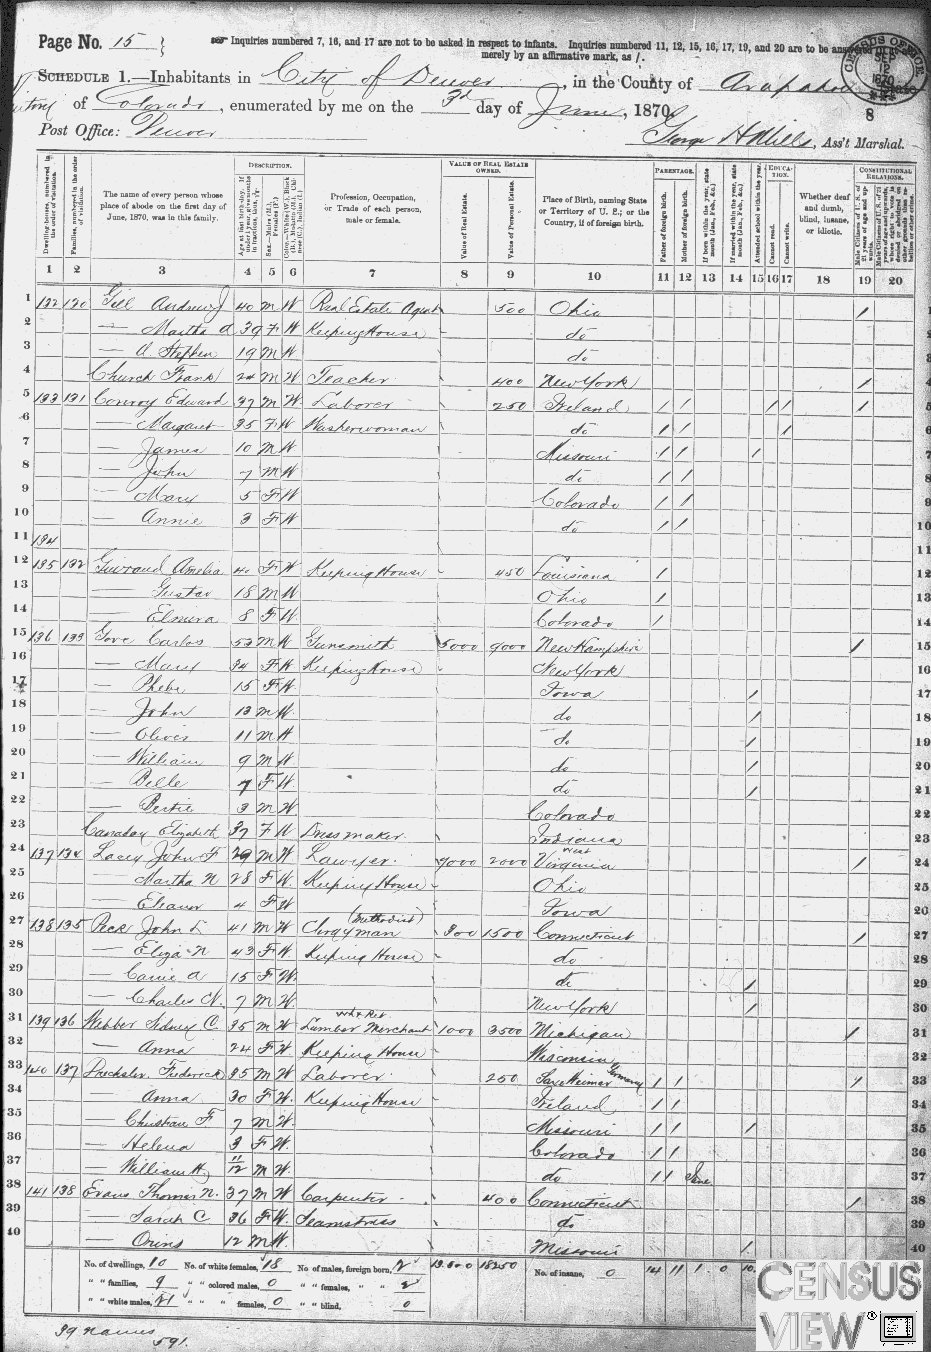 Page No. 15
Inquiries numbered 7, 16, and 17 are not to be asked in respect to infants. Inquiries numbered 11, 12, 15, 16, 17, 19, and 20 are to be answered
merely by an affirmative mark, as /.
CENSUS OFFICE SEP 12 1870
SCHEDULE 1.—Inhabitants in City of Denver, in the County of Arapahoe, State
of Colorado, enumerated by me on the 3d day of June, 1870.
8
Post Office: Denver
George H Mills, Ass't Marshal.
DESCRIPTION. VALUE OF REAL ESTATE OWNED. PARENTAGE. EDUCATION. CONSTITUTIONAL RELATIONS.
Dwelling-houses, numbered in the order of visitation.
Families, numbered in the order of visitation.
The name of every person whose place of abode on the first day of June, 1870, was in this family.
Profession, Occupation, or Trade of each person, male or female.
Value of Real Estate.
Value of Personal Estate.
Place of Birth, naming State or Territory of U. S.; or the Country, if of foreign birth.
Father of foreign birth.
Mother of foreign birth.
Attended school within the year.
Cannot read.
Cannot write.
Whether deaf and dumb, blind, insane, or idiotic.
1 2 3 4 5 6 7 8 9 10 11 12 13 14 15 16 17 18 19 20
1 132 130 Gill Andrew J 40 M W Real Estate Agent 500 Ohio / 1
2 — Martha A 39 F W Keeping House do 2
3 — A. Stephen 19 M W do 3
4 Church Frank 24 M W Teacher 400 New York / 4
5 133 131 Conroy Edward 37 M W Laborer 250 Ireland / / / / / 5
6 — Margaret 35 F W Washerwoman do / / / 6
7 — James 10 M W Missouri / / / 7
8 — John 7 M W do / / 8
9 — Mary 5 F W Colorado / / 9
10 — Annie 3 F W do / / 10
11 134 11
12 135 132 Guiraud Amelia 40 F W Keeping House 450 Louisiana / 12
13 — Gustav 18 M W Ohio / 13
14 — Elmira 8 F W Colorado / 14
15 136 133 Gove Carlos 53 M W Gunsmith 5000 9000 New Hampshire / 15
16 — Mary 34 F W Keeping House New York 16
17 — Phebe 15 F W Iowa / 17
18 — John 13 M W do / 18
19 — Oliver 11 M W do / 19
20 — William 9 M W do / 20
21 — Belle 7 F W do / 21
22 — Bertie 3 M W Colorado 22
23 Canaday Elizabeth 37 F W Dressmaker Indiana 23
24 137 134 Lacey John F 29 M W Lawyer 7000 2000 West Virginia / 24
25 — Martha N 28 F W Keeping House Ohio 25
26 — Eleanor 4 F W Iowa 26
27 138 135 Peck John L 41 M W Clergyman (Methodist) 300 1500 Connecticut / 27
28 — Eliza N 43 F W Keeping House do 28
29 — Carrie A 15 F W do / 29
30 — Charles N. 7 M W New York / 30
31 139 136 Webber Sidney C 35 M W Lumber Merchant 1000 3500 Michigan / 31
32 — Anna 24 F W Keeping House Wisconsin 32
33 140 137 Drechsler Frederick 35 M W Laborer 250 Saxe Weimar Germany / / / 33
34 — Anna 30 F W Keeping House Ireland / / 34
35 — Christian F 7 M W Missouri / / / 35
36 — Helena 3 F W Colorado / / 36
37 — William H. 11/12 M W do / / June 37
38 141 138 Evans Thomas N. 37 M W Carpenter 400 Connecticut / 38
39 — Sarah C 36 F W Seamstress do 39
40 — Orins 12 M W Missouri / 40
No. of dwellings, 10 No. of white females, 18 No. of males, foreign born, 2 13.600 18250 No. of insane, 0 14 11 1 0 10
" " families, 9 " " colored males, 0 " " females, " " 2
" " white males, 21 " " " females, 0 " " blind, 0
39 names
591.
CENSUS
VIEW